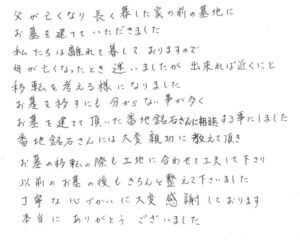 父が亡くなり 長く暮した家の前の墓地に
お墓を建てていただきました
私たちは離れて暮しておりますので
母が亡くなったとき 迷いましたが 出来れば近くにと
移転を考える様になりました
お墓を移すにも 分からない事が多く
お墓を建てて頂いた番地銘石さんに相談する事にしました
番地銘石さんには大変 親切に教えて頂き
お墓の移転の際も土地に合わせて工夫して下さり
以前のお墓の後もきちんと整えて下さいました
丁寧な心づかいに大変 感謝しております
本当に ありがとう ございました